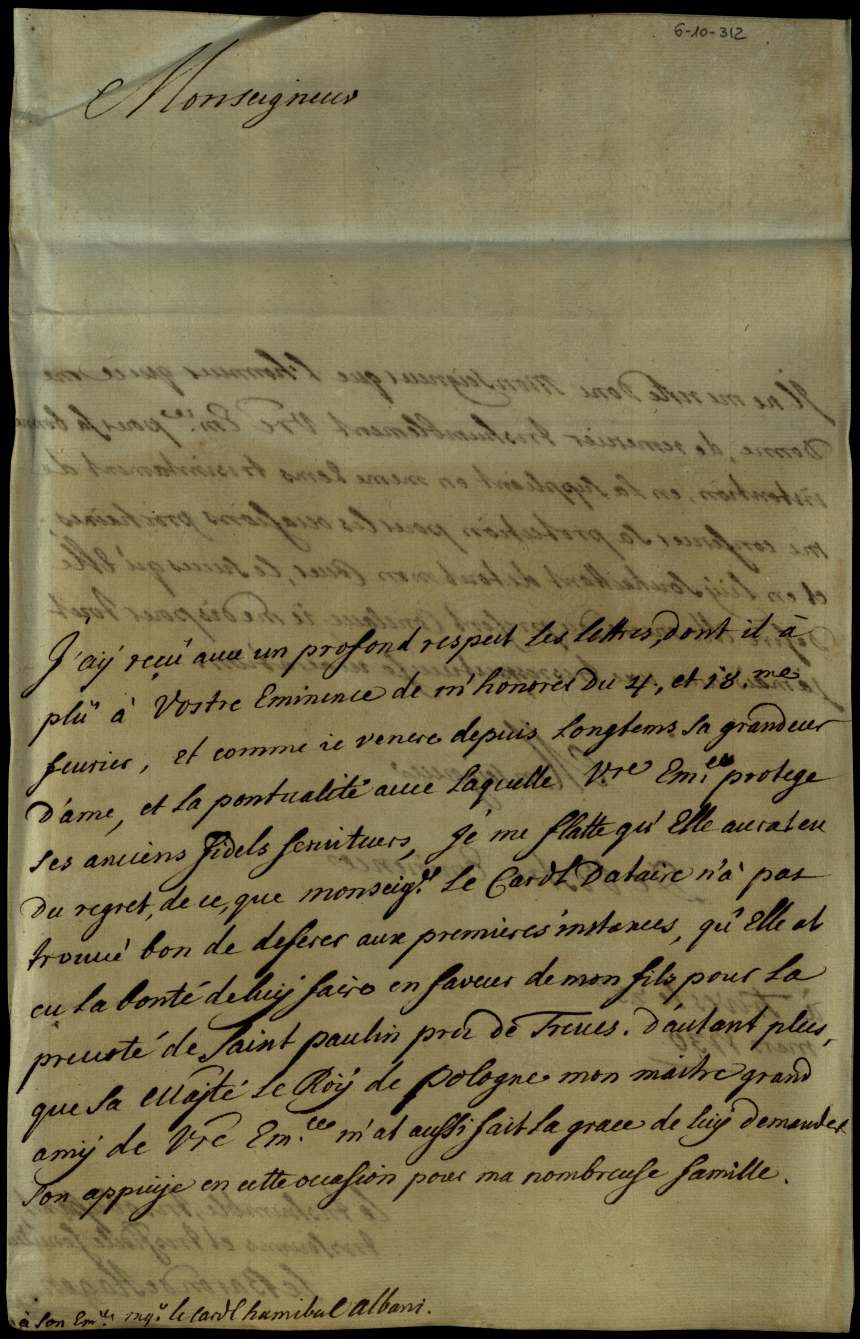 6-10-312
Monseigneur
J'aÿ reçu avec un profond respect les lettres, dont il à
plû à Vostre Eminence de m'honorer du 4, et 18.me
feurier, et comme ie venere depuis longtems sa grandeur
d'ame, et la pontualité auec laquelle Vre Em.ce protege
ses anciens fidels seruiteurs, Je me flatte qu'Elle aurat eu
du regret, de ce, que monseigr le Cardl Dataire n'à pas
trouué bon de deferer aux premieres instances, qu'Elle at
eu la bonté de luÿ faire en faveur de mon fils pour la
preuoté de Saint paulin prez de Treues. d'autant plus,
que sa Majté le Roÿ de Pologne mon maitre grand
amÿ de Vre Em.ce m'at aussi fait la grace de luÿ demander
son appuÿe en cette occasion pour ma nombreuse famille.
à son Em.ce mgr le cardl hannibal Albani.